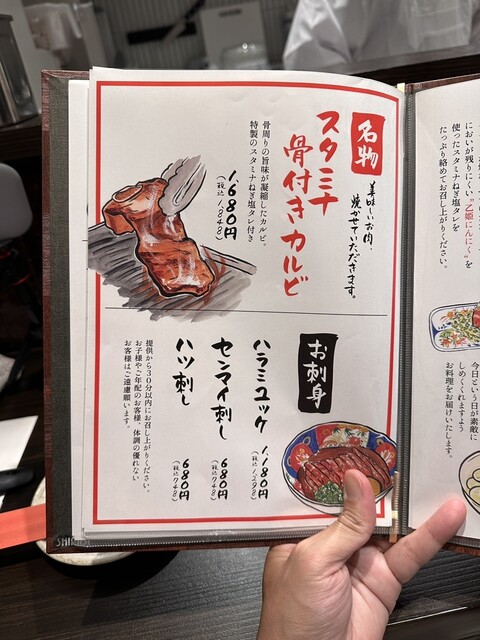 名物
美味しいお肉、
焼かせていただきます。
スタミナ
骨付きカルビ
骨周りの旨味が凝縮したカルビ。
特製のスタミナねぎ塩タレ付き
1,680円
(税込1,848)
お刺身
ハラミユッケ
1,180円
(税込1,298)
センマイ刺し
680円
(税込748)
ハツ刺し
680円
(税込748)
提供から30分以内にお召し上がりください。
お子様やご年配のお客様、体調の優れない
お客様はご遠慮願います。
においが残りにくい、"乙姫にんにく"を
使ったスタミナねぎ塩タレを
たっぷり絡めてお召し上がりください。
今日という日が素敵に
しめくくれますよう
お料理をお届けいたします。